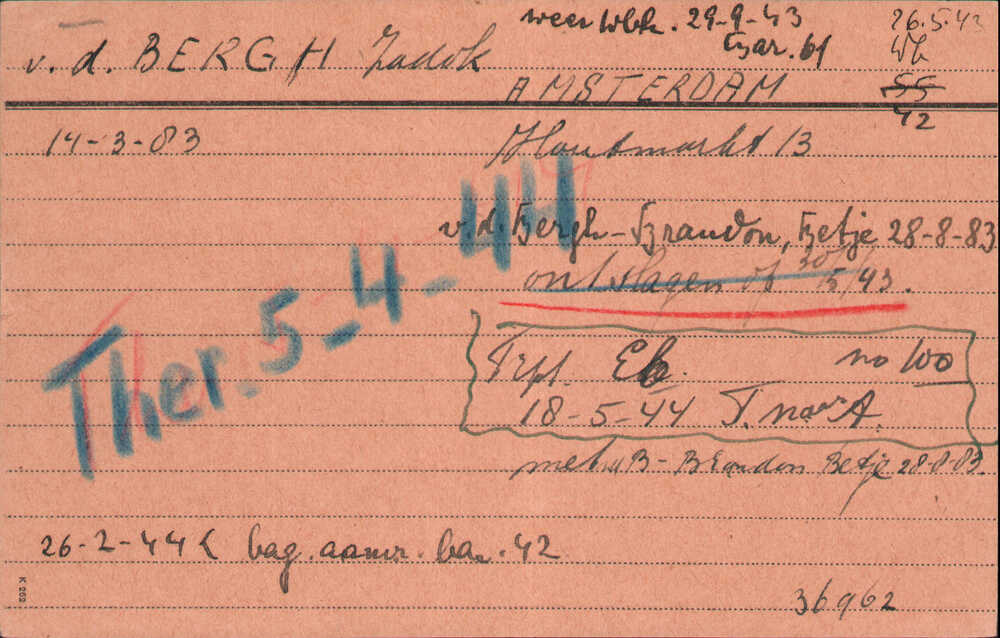 v. d. BERGH Zadok
weer Wbk. 29-9-43
bar. 61
26.5.43
Wb
55
42
AMSTERDAM
14-3-83
Houtmarkt 13
v.d. Bergh-Brandon, Betje 28-8-83
ontslagen op 30/5/43.
Ther. 5-4-44
Trpt. Eb. no 100
18-5-44 T. naar A.
met B-Brandon Betje 28-8-83.
26-2-44 < bag. aanw. ba. 42
36962
K 262